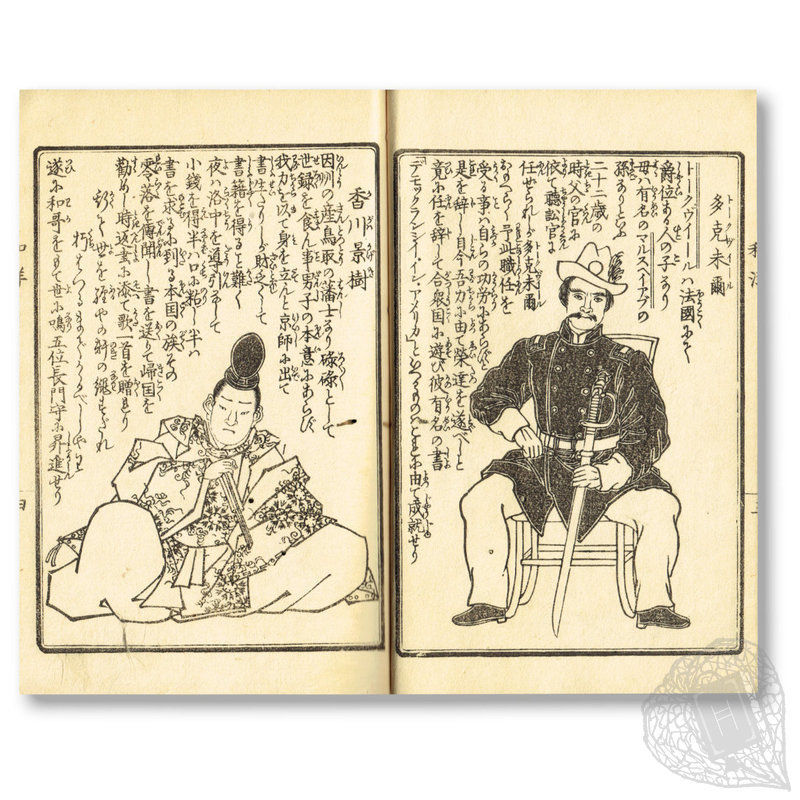 多克未爾
トークヴイールハ法國にて
爵位ある人の子なり
母ハ有名のマルスヘイアブの
孫なりといふ
二十三歳の
時父の官に
依て聽訟官に
任せられしが多克未爾
おもへらく予此職任を
受る事ハ自らの功労にあらじと
是を辞し自今吾力に由て榮達を遂べしと
竟に任を辞して合衆国に遊び彼有名の書
「デモックラシーイン、アメリカ」といへるもの こゝに由て成就せり
香川景樹
因州の産鳥取の藩士なり碌碌として
世録を食ん事男子の本意にあらじ
我力を以て身を立んと京師に出て
書生たりしが財乏くして
書籍を得ると難く
夜ハ洛中を導引して
小銭を得半ハ口に粘し半ハ
書を求るに到る本国の族その
零落を傳聞し書を送りて帰国を
勧めし時返書に添て歌一首を贈れり
世を の軒の縄すだれ
朽はつるまでかゝるべしやハ
遂に和哥をもて世に鳴五位長門守に昇進せり
H